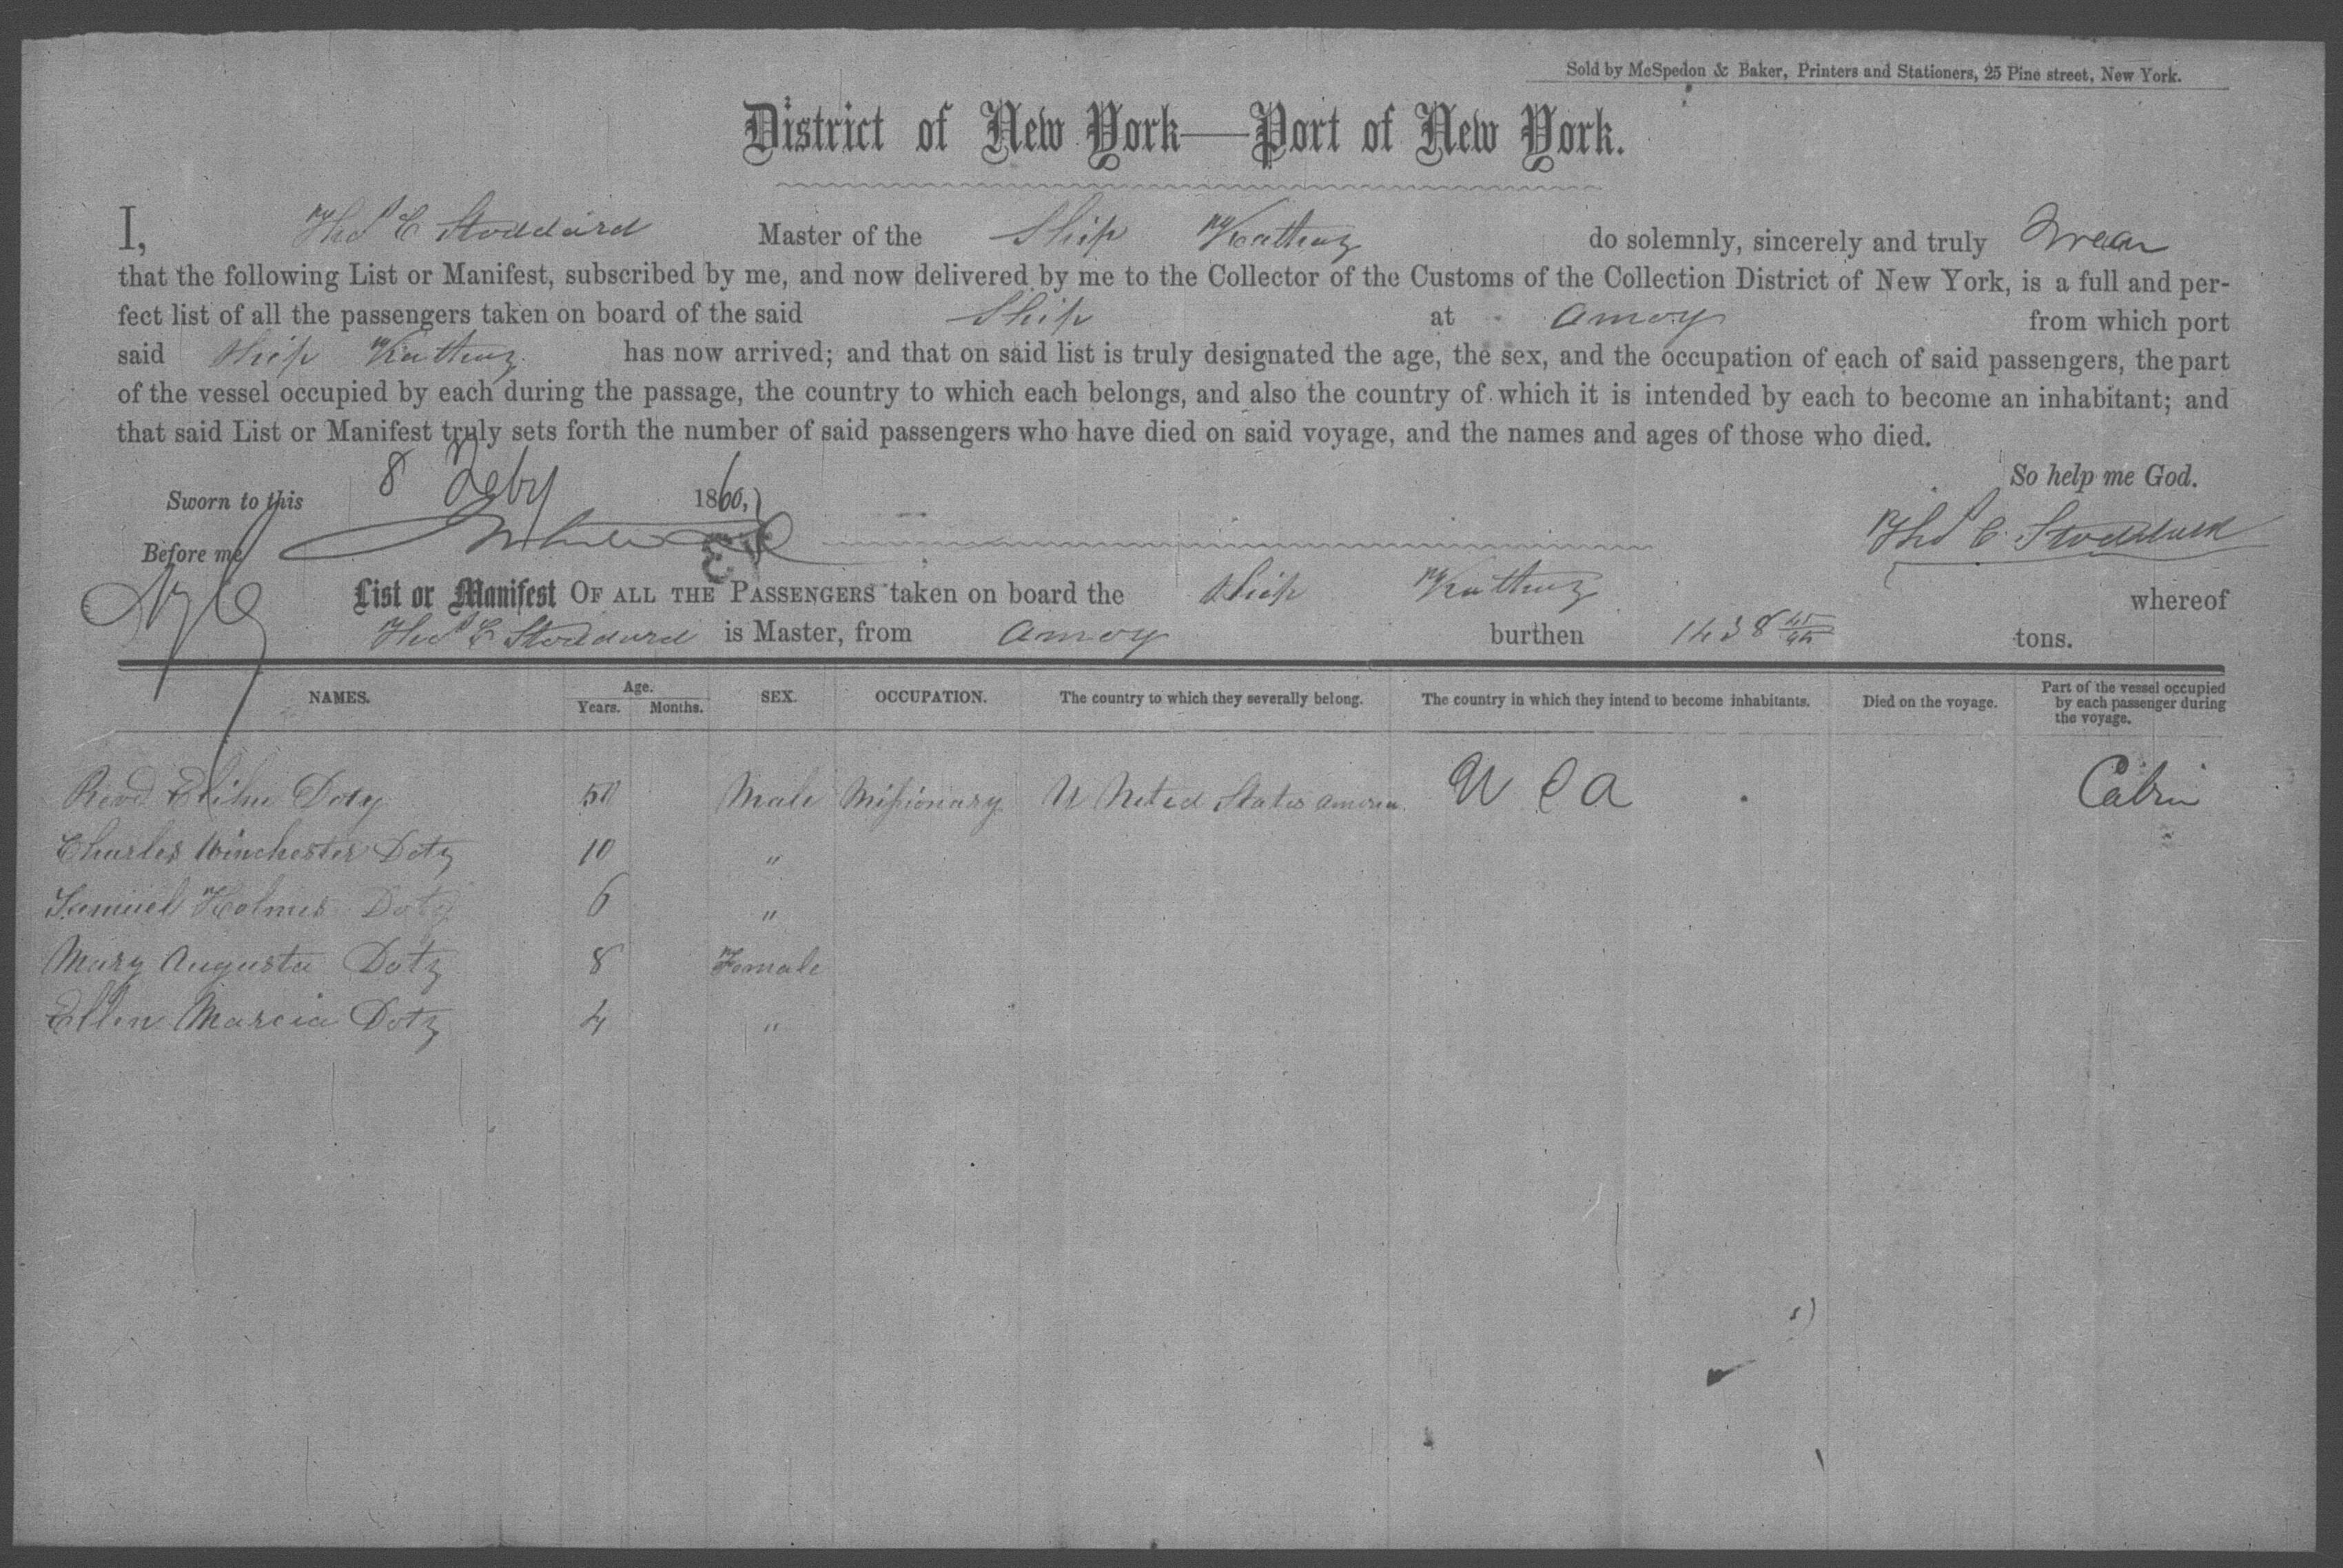 Sold by McSpedon & Baker, Printers and Stationers, 25 Pine street, New York.
District of New York—Port of New York.
I, Thos C Stoddard Master of the Ship Kathay do solemnly, sincerely and truly Swear
that the following List or Manifest, subscribed by me, and now delivered by me to the Collector of the Customs of the Collection District of New York, is a full and per-
fect list of all the passengers taken on board of the said Ship at Amoy from which port
said Ship Kathay has now arrived; and that on said list is truly designated the age, the sex, and the occupation of each of said passengers, the part
of the vessel occupied by each during the passage, the country to which each belongs, and also the country of which it is intended by each to become an inhabitant; and
that said List or Manifest truly sets forth the number of said passengers who have died on said voyage, and the names and ages of those who died.
So help me God.
Sworn to this 8 Feby 1860,
Before me
Thos C. Stoddard
List or Manifest OF ALL THE PASSENGERS taken on board the Ship Kathay whereof
Thos C Stoddard is Master, from Amoy burthen 1438 tons.
NAMES. Age. Years. Months. SEX. OCCUPATION. The country to which they severally belong. The country in which they intend to become inhabitants. Died on the voyage. Part of the vessel occupied by each passenger during the voyage.
Revd Elihu Doty 50 Male Missionary U Nited States America U S A Cabin
Charles Winchester Doty 10 "
Samuel Holmes Doty 6 "
Mary Augusta Doty 8 Female
Ellen Marcia Doty 4 "